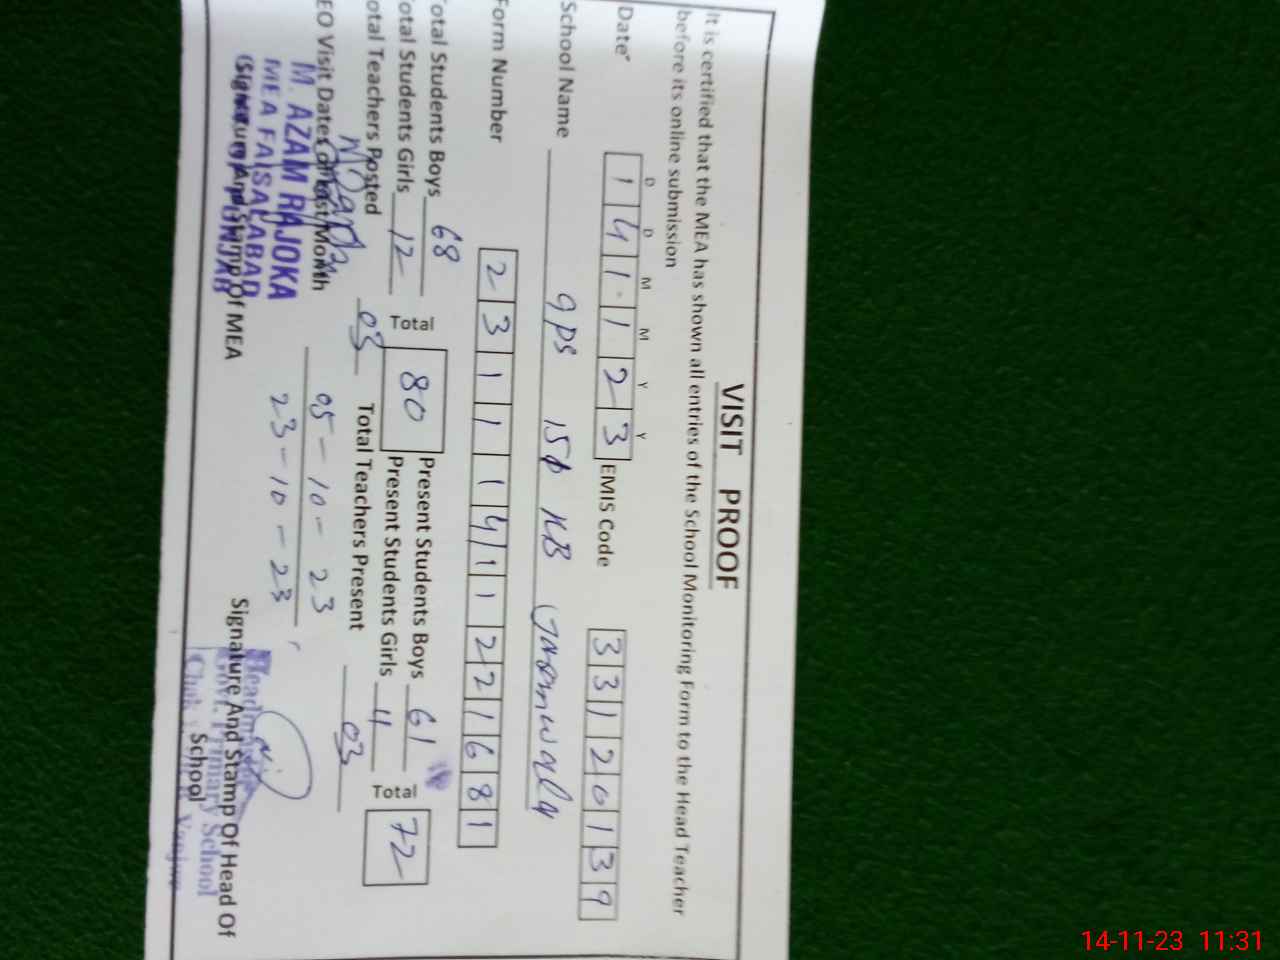 VISIT PROOF
It is certified that the MEA has shown all entries of the School Monitoring Form to the Head Teacher
before its online submission
D D M M Y Y
Date 1 4 1 1 2 3 EMIS Code 3 3 1 2 0 1 3 9
School Name gps 150 RB
Form Number 2 3 1 1 1 4 1 1 2 2 1 6 8 1
Total Students Boys 68 Total 80 Present Students Boys 61 Total 72
Total Students Girls 12 Present Students Girls 11
Total Teachers Posted 03 Total Teachers Present 03
EO Visit Dates of Last Month 05-10-23
23-10-23
M. AZAM RAJOKA
MEA FAISALABAD
PUNJAB
(Signature And Stamp Of MEA
Signature And Stamp Of Head Of
School
Govt. Primary School
Chak
14-11-23 11:31